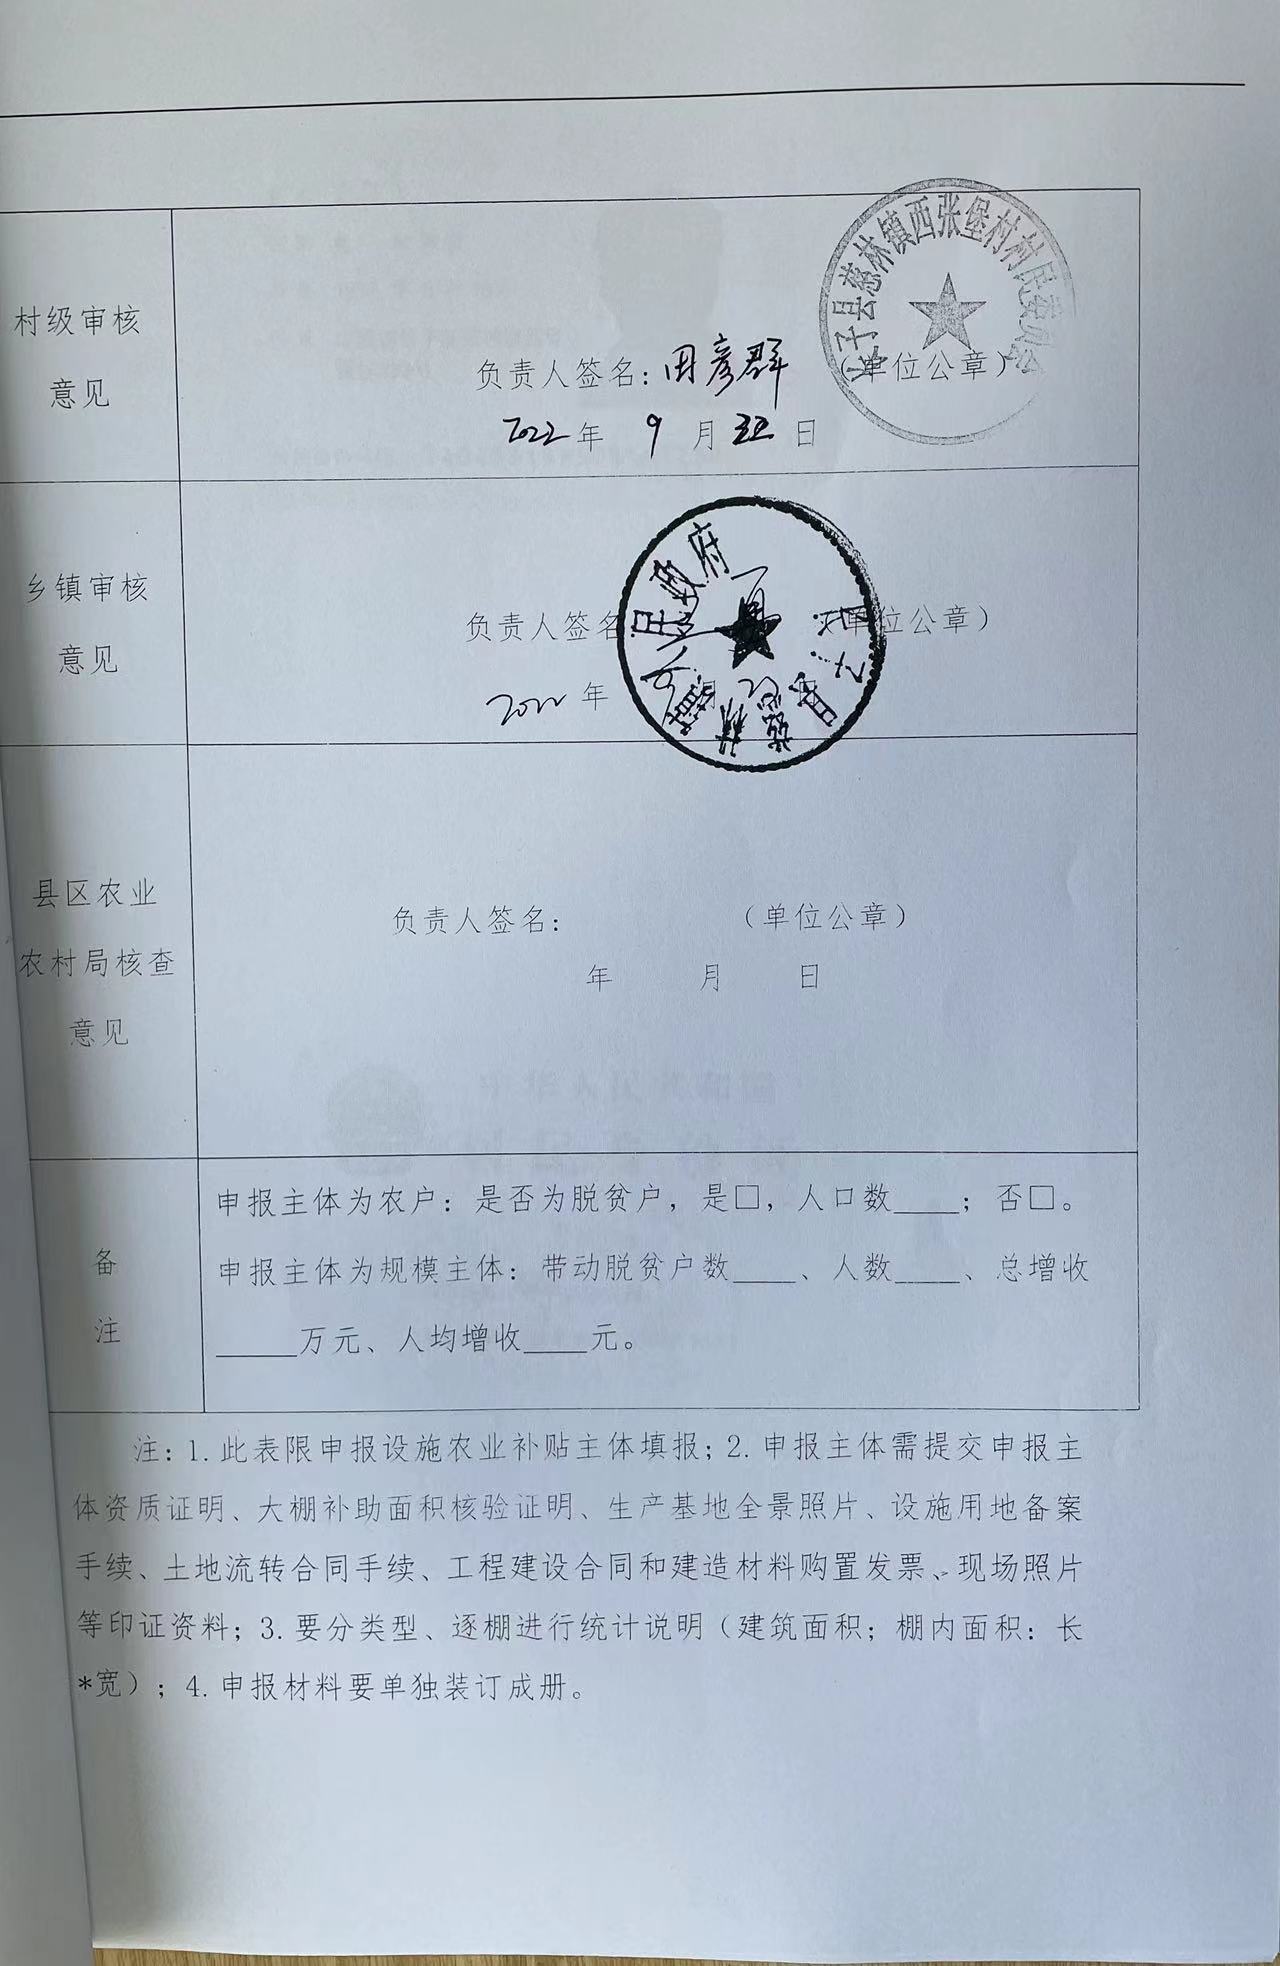 长子县慈林镇西张堡村村民委员会
村级审核
意见
负责人签名：田彦群（单位公章）
2022年 9月 日
乡镇审核
意见
长子县慈林镇人民政府
负责人签名 （单位公章）
2022年
县区农业
农村局核查
意见
负责人签名： （单位公章）
年 月 日
备
注
申报主体为农户：是否为脱贫户，是□，人口数____；否□。
申报主体为规模主体：带动脱贫户数____、人数____、总增收
_____万元、人均增收____元。
注：1.此表限申报设施农业补贴主体填报；2.申报主体需提交申报主
体资质证明、大棚补助面积核验证明、生产基地全景照片、设施用地备案
手续、土地流转合同手续、工程建设合同和建造材料购置发票、现场照片
等印证资料；3.要分类型、逐棚进行统计说明（建筑面积；棚内面积：长
*宽）；4.申报材料要单独装订成册。